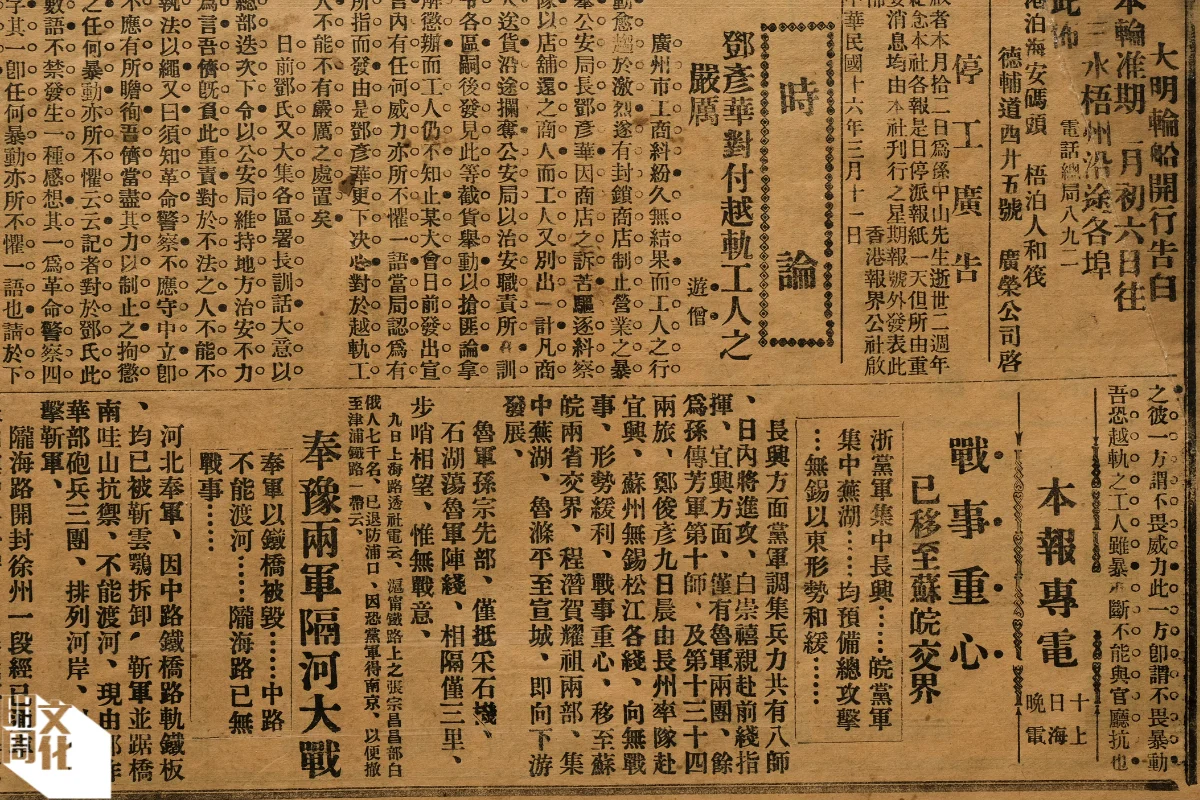 大明輪船開行告白
本輪准期月初六日往
三水梧州沿途各埠
此佈
電話總局八九二
港泊海安碼頭　梧泊人和筏
德輔道西廿五號　廣榮公司啓
停工廣告
者本月拾二日爲孫中山先生逝世二週年
紀念本社各報是日停派報紙一天但所由重
要消息均由本社刊行之星期報號外發表此
佈　香港報界公社啟
中華民國十六年三月十一日
時論
鄧彥華對付越軌工人之
嚴厲　遊僧
廣州市工商糾紛久無結果而工人之行
動愈趨於激烈遂有封鎖商店制止營業之暴
公安局長鄧彥華因商店之訴苦驅逐糾察
隊以店舖還之商人而工人又別出一計凡商
人送貨沿途攔奪公安局以治安職責所在訓
令各區嗣後發見此等截貨舉動以搶匪論拿
解懲辦而工人仍不知止某大會日前發出宣
言內有任何威力亦所不懼一語當局認爲有
所指而發由是鄧彥華更下决心對於越軌工
人不能不有嚴厲之處置矣
日前鄧氏又大集各區署長訓話大意以
總部迭次下令以公安局維持地方治安不力
爲言吾儕旣負此重責對於不法之人不能不
執法以繩又曰須知革命警察不應守中立卽
不應有所瞻徇吾儕當盡其力以制止之拘懲
之任何暴動亦所不懼云云記者對於鄧氏此
數語不禁發生一種感想其一爲革命警察四
字其一卽任何暴動亦所不懼一語也請於下
之彼一方謂不畏威力此一方卽謂不畏暴動
吾恐越軌之工人雖暴斷不能與官廳抗也
本報專電
十上
日海
晚電
戰事重心
已移至蘇皖交界
浙黨軍集中長興……皖黨軍
集中蕪湖……均預備總攻擊
…無錫以東形勢和緩……
長興方面黨軍調集兵力共有八師
、日內將進攻、白崇禧親赴前綫指
揮、宜興方面、僅有魯軍兩團、餘
爲孫傳芳軍第十師、及第十三十四
兩旅、鄭俊彥九日晨由長州率隊赴
宜興、蘇州無錫松江各綫、向無戰
事、形勢緩利、戰事重心、移至蘇
皖兩省交界、程潛賀耀祖兩部、集
中蕪湖、魯滌平至宣城、即向下游
發展、
魯軍孫宗先部、僅抵采石磯、
石湖蕩魯軍陣綫、相隔僅三里、
步哨相望、惟無戰意、
九日上海路透社電云、滬甯鐵路上之張宗昌部白
俄人七千名、已退防浦口、因恐黨軍得南京、以便撤
至津浦鐵路一帶云、
奉豫兩軍隔河大戰
奉軍以鐵橋被毀……中路
不能渡河……隴海路已無
戰事……
河北奉軍、因中路鐵橋路軌鐵板
、均已被靳雲鶚拆卸、靳軍並踞橋
南哇山抗禦、不能渡河、現由部昨
華部砲兵三團、排列河岸、
擊靳軍、
隴海路開封徐州一段經已
文化
出淅周